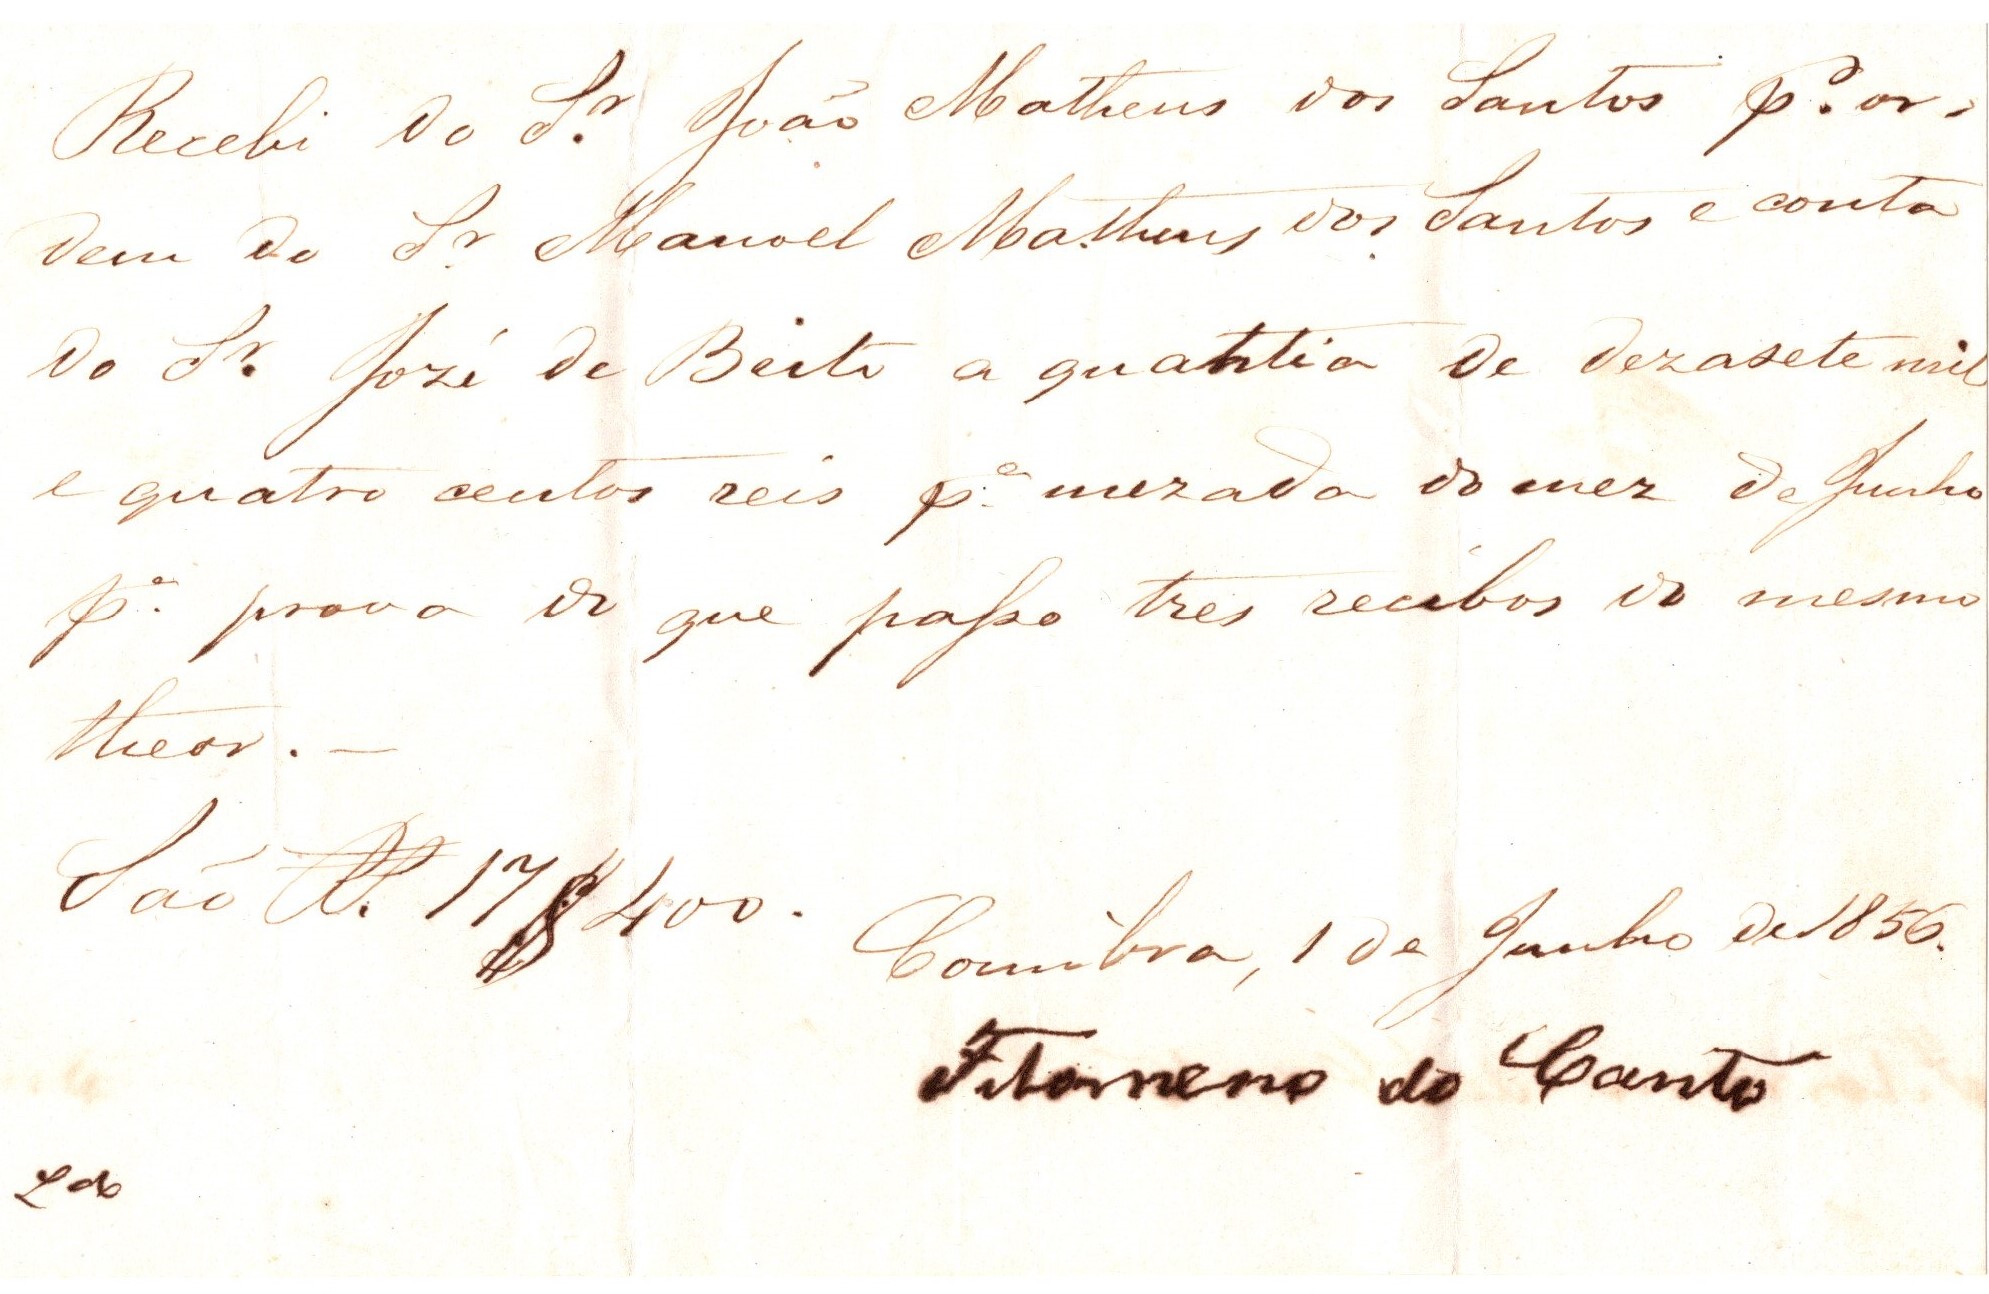 Recebi do Sr. João Matheus dos Santos pr. or-
dem do Sr. Manoel Matheus dos Santos e conta
do Sr. Jozé de Beito a quantia de dezasete mil
e quatro centos reis pa. mezada do mez de Junho
pa. prova do que passo tres recibos do mesmo
theor. —
São Rs. 17$400.
Coimbra, 1 de Junho de 1856.
Filomeno do Canto